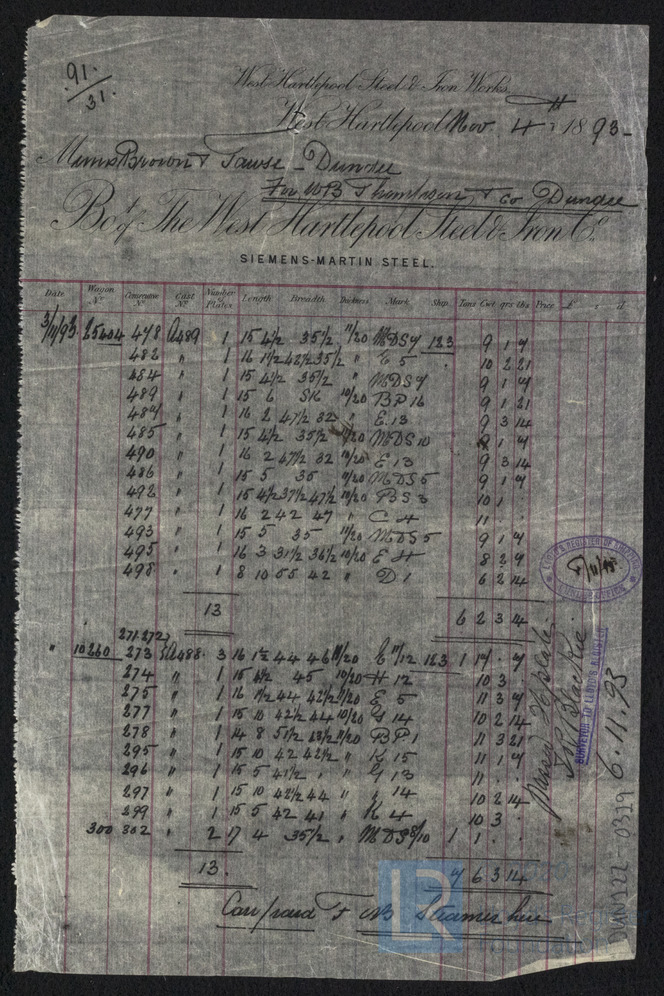 91.
31.
West Hartlepool Steel & Iron Works,
West Hartlepool Nov. 4th 1893-
Messrs Brown & Tawse - Dundee
For WB Thompson & Co Dundee
Bot of The West Hartlepool Steel & Iron Co.
SIEMENS-MARTIN STEEL.
Date Wagon No. Consecutive No. Cast No. Number of Plates Length Breadth Thickness Mark Ship Tons Cwt qrs lbs Price £ s d
3/11/93 25404 478 A489 1 15 4½ 35½ 11/20 MDS7 123 9 1 7
482 " 1 16 1½ 42½ 35½ " E 5 10 2 21
484 " 1 15 4½ 35½ " MDS7 9 1 7
489 " 1 15 6 SK 10/20 BP16 9 1 21
487 " 1 16 2 47½ 32 " E.13 9 3 14
485 " 1 15 4½ 35½ 11/20 MDS10 9 1 7
490 " 1 16 2 47½ 32 10/20 E 13 9 3 14
486 " 1 15 5 35 " MDS5 9 1 7
492 " 1 15 4½ 37½ 47½ 10/20 BS3 10 1
477 " 1 16 2 42 47 " C H 11
493 " 1 15 5 35 11/20 MDS5 9 1 7
495 " 1 16 3 31½ 36½ 10/20 E H 8 2 9
498 " 1 8 10 55 42 " D 1 6 2 14
13 6 2 3 14
271.272
" 10260 273 A488. 3 16 1½ 44 46 11/20 E 11/12 123 1 14 . 7
274 " 1 15 6½ 45 10/20 H 12 10 3
275 " 1 16 1½ 44 42½ 11/20 E 5 11 3 7
277 " 1 15 10 42½ 44 10/20 14 10 2 14
278 " 1 14 8 51½ 11/20 BP1 11 3 21
295 " 1 15 10 42 42½ " K 15 11 1 7
296 " 1 15 5 41½ " " 13 11
297 " 1 15 10 42½ 44 " " 14 10 2 14
299 " 1 15 5 42 41 " K 4 10 3
300 302 " 2 17 4 35½ " MDS8/10 1 1
13. 7 6 3 14
Car/paid & NB Steamer here
LLOYD'S REGISTER OF
Passed 26 plates.
John Blackie
SURVEYOR TO LLOYD'S REGISTER
6.11.93
DUN322-0329
LR